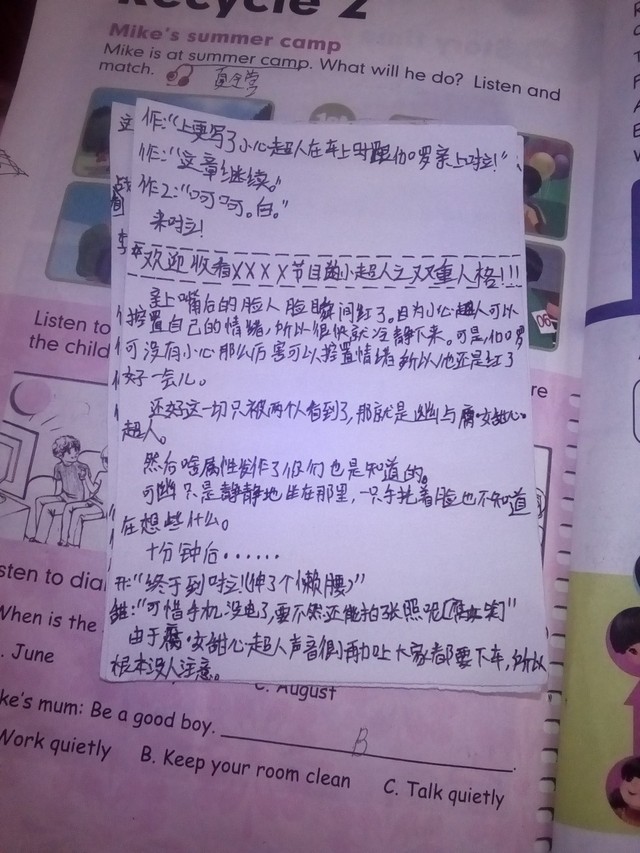 Recycle 2
Mike's summer camp
Mike is at summer camp. What will he do? Listen and
match.
作:“上更写了小心超人在车上时跟伽罗亲上啦!”
作:“这章继续。”
作2:“呵呵。白。”
来啦!
欢迎收看XXXX节目的小超人之双重人格!!!
亲上嘴后的脸人脸瞬间红了。因为小心超人可以
控置自己的情绪,所以很快就冷静下来。可是,伽罗
可没有小心那么厉害可以控置情绪所以他还是红了
好一会儿。
还好这一切只被两个人看到了,那就是幽与腐·女甜心·
超人。
然后啥属性发作了你们也是知道的。
可幽只是静静地坐在那里,一只手托着脸也不知道
在想些什么。
十分钟后······
开:“终于到啦!(伸了个懒腰)”
甜:“可惜手机没电了,要不然还能拍张照呢[腐女笑]”
由于腐·女甜心超人声音很小再加上大家都要下车,所以
根本没人注意。
Listen to
the child
re
sten to dia
When is the
. June
C. August
ke's mum: Be a good boy.
B
Work quietly
B. Keep your room clean
C. Talk quietly